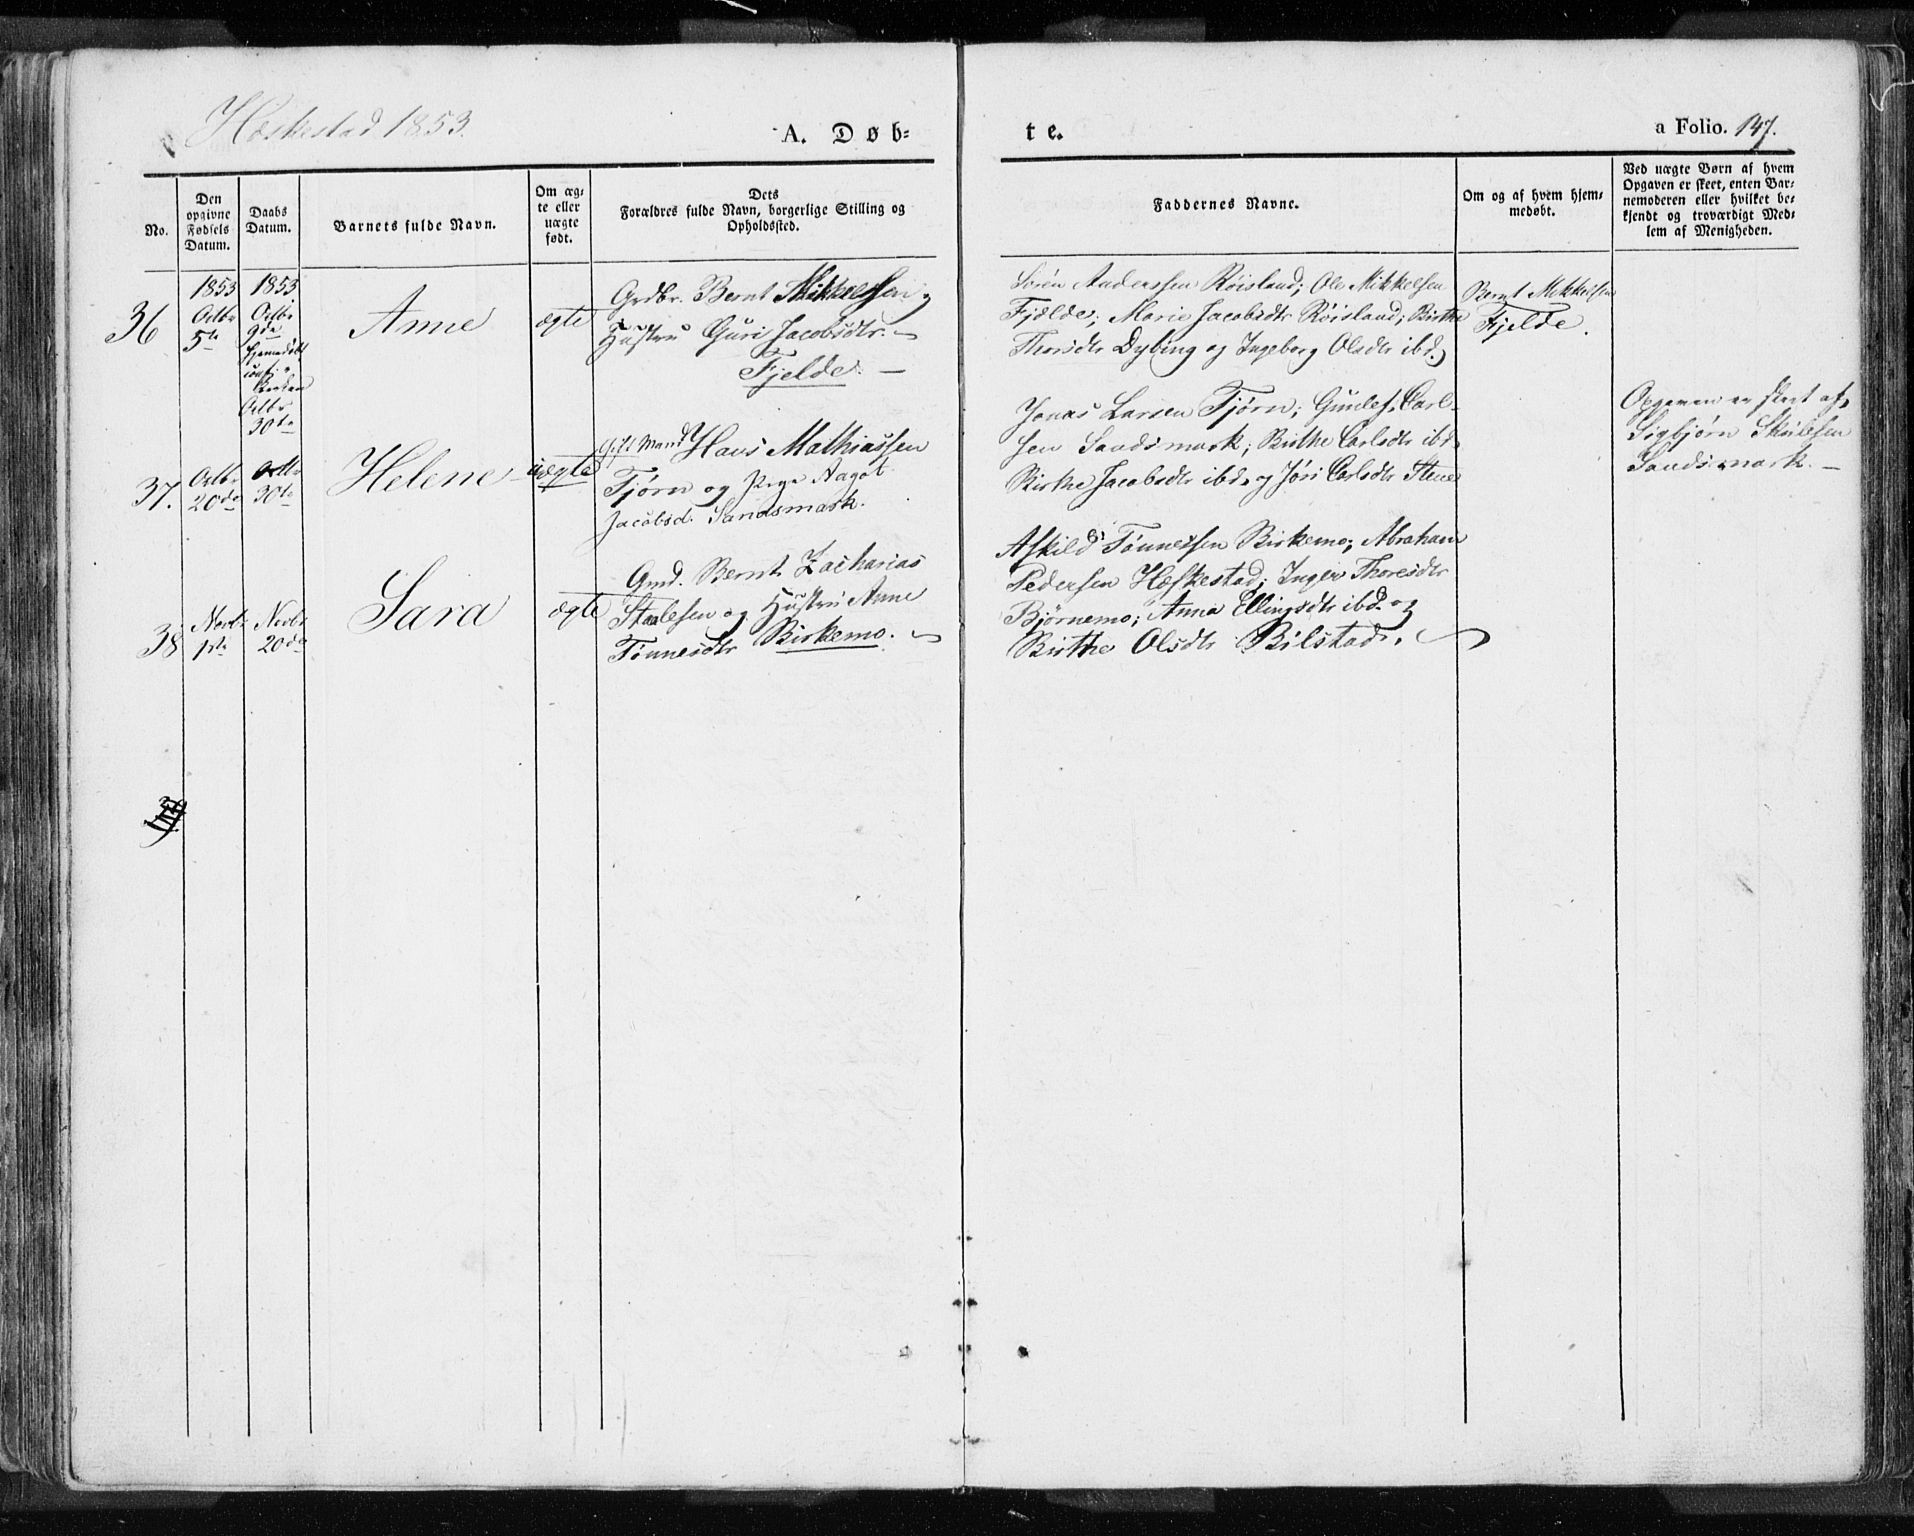 Heskestad 1853.
A. Døb-
te.
a Folio. 147.
No.
Den
opgivne
Fødsels
Datum.
Daabs
Datum.
Barnets fulde Navn.
Om æg-
te eller
uægte
født.
Dets
Forældres fulde Navn, borgerlige Stilling og
Opholdssted.
Faddernes Navne.
Om og af hvem hjem-
medøbt.
Ved uægte Børn af hvem
Opgaven er skeet, enten Bar-
nemoderen eller hvilket be-
kjendt og troværdigt Med-
lem af Menigheden.
36
1853
Octbr
5te
1853.
Octbr
9de
Hjemmedøbt
i
Kirken
Octbr
30te
Anne
ægte
Grdbr. Bernt Mikkelsen og
Hustru Guri Jacobsdtr.
Fjelde. —
Sørén Anderssen Røisland; Ole Mikkelsen
Fjælde; Marie Jacobsdtr Røisland; Birthe
Thorsdtr Dybing og Ingeborg Olsdtr ibd.
Bernt Mikkelsen
Fjelde.
37.
Octbr
20de
Octbr
30te
Helene
uægte
gift Mand Hans Mathiassen
Tjørn og Pige Aagot
Jacobsd. Sandsmark.
Jonas Larsen Tjørn; Gunlef Carl-
sen Sandsmark; Birthe Carlsdtr ibd.
Birthe Jacobsdtr ibd. og Jóri Carlsdtr Stene
Opgaven er skeet af
Sigbjørn Skulesen
Sandsmark. —
38
Novbr
1ste
Novbr
20de
Sara
ægte
Gmd. Bernt Zacharias
Staalesen og Hustru Anne
Tønnesdtr Birkemo.
Askild Tønnessen Birkemo; Abraham
Pedersen Heskestad; Inger Thoresdtr
Bjørnemo; Anna Ellingsdtr ibd. og
Birthe Olsdtr Bilstad.